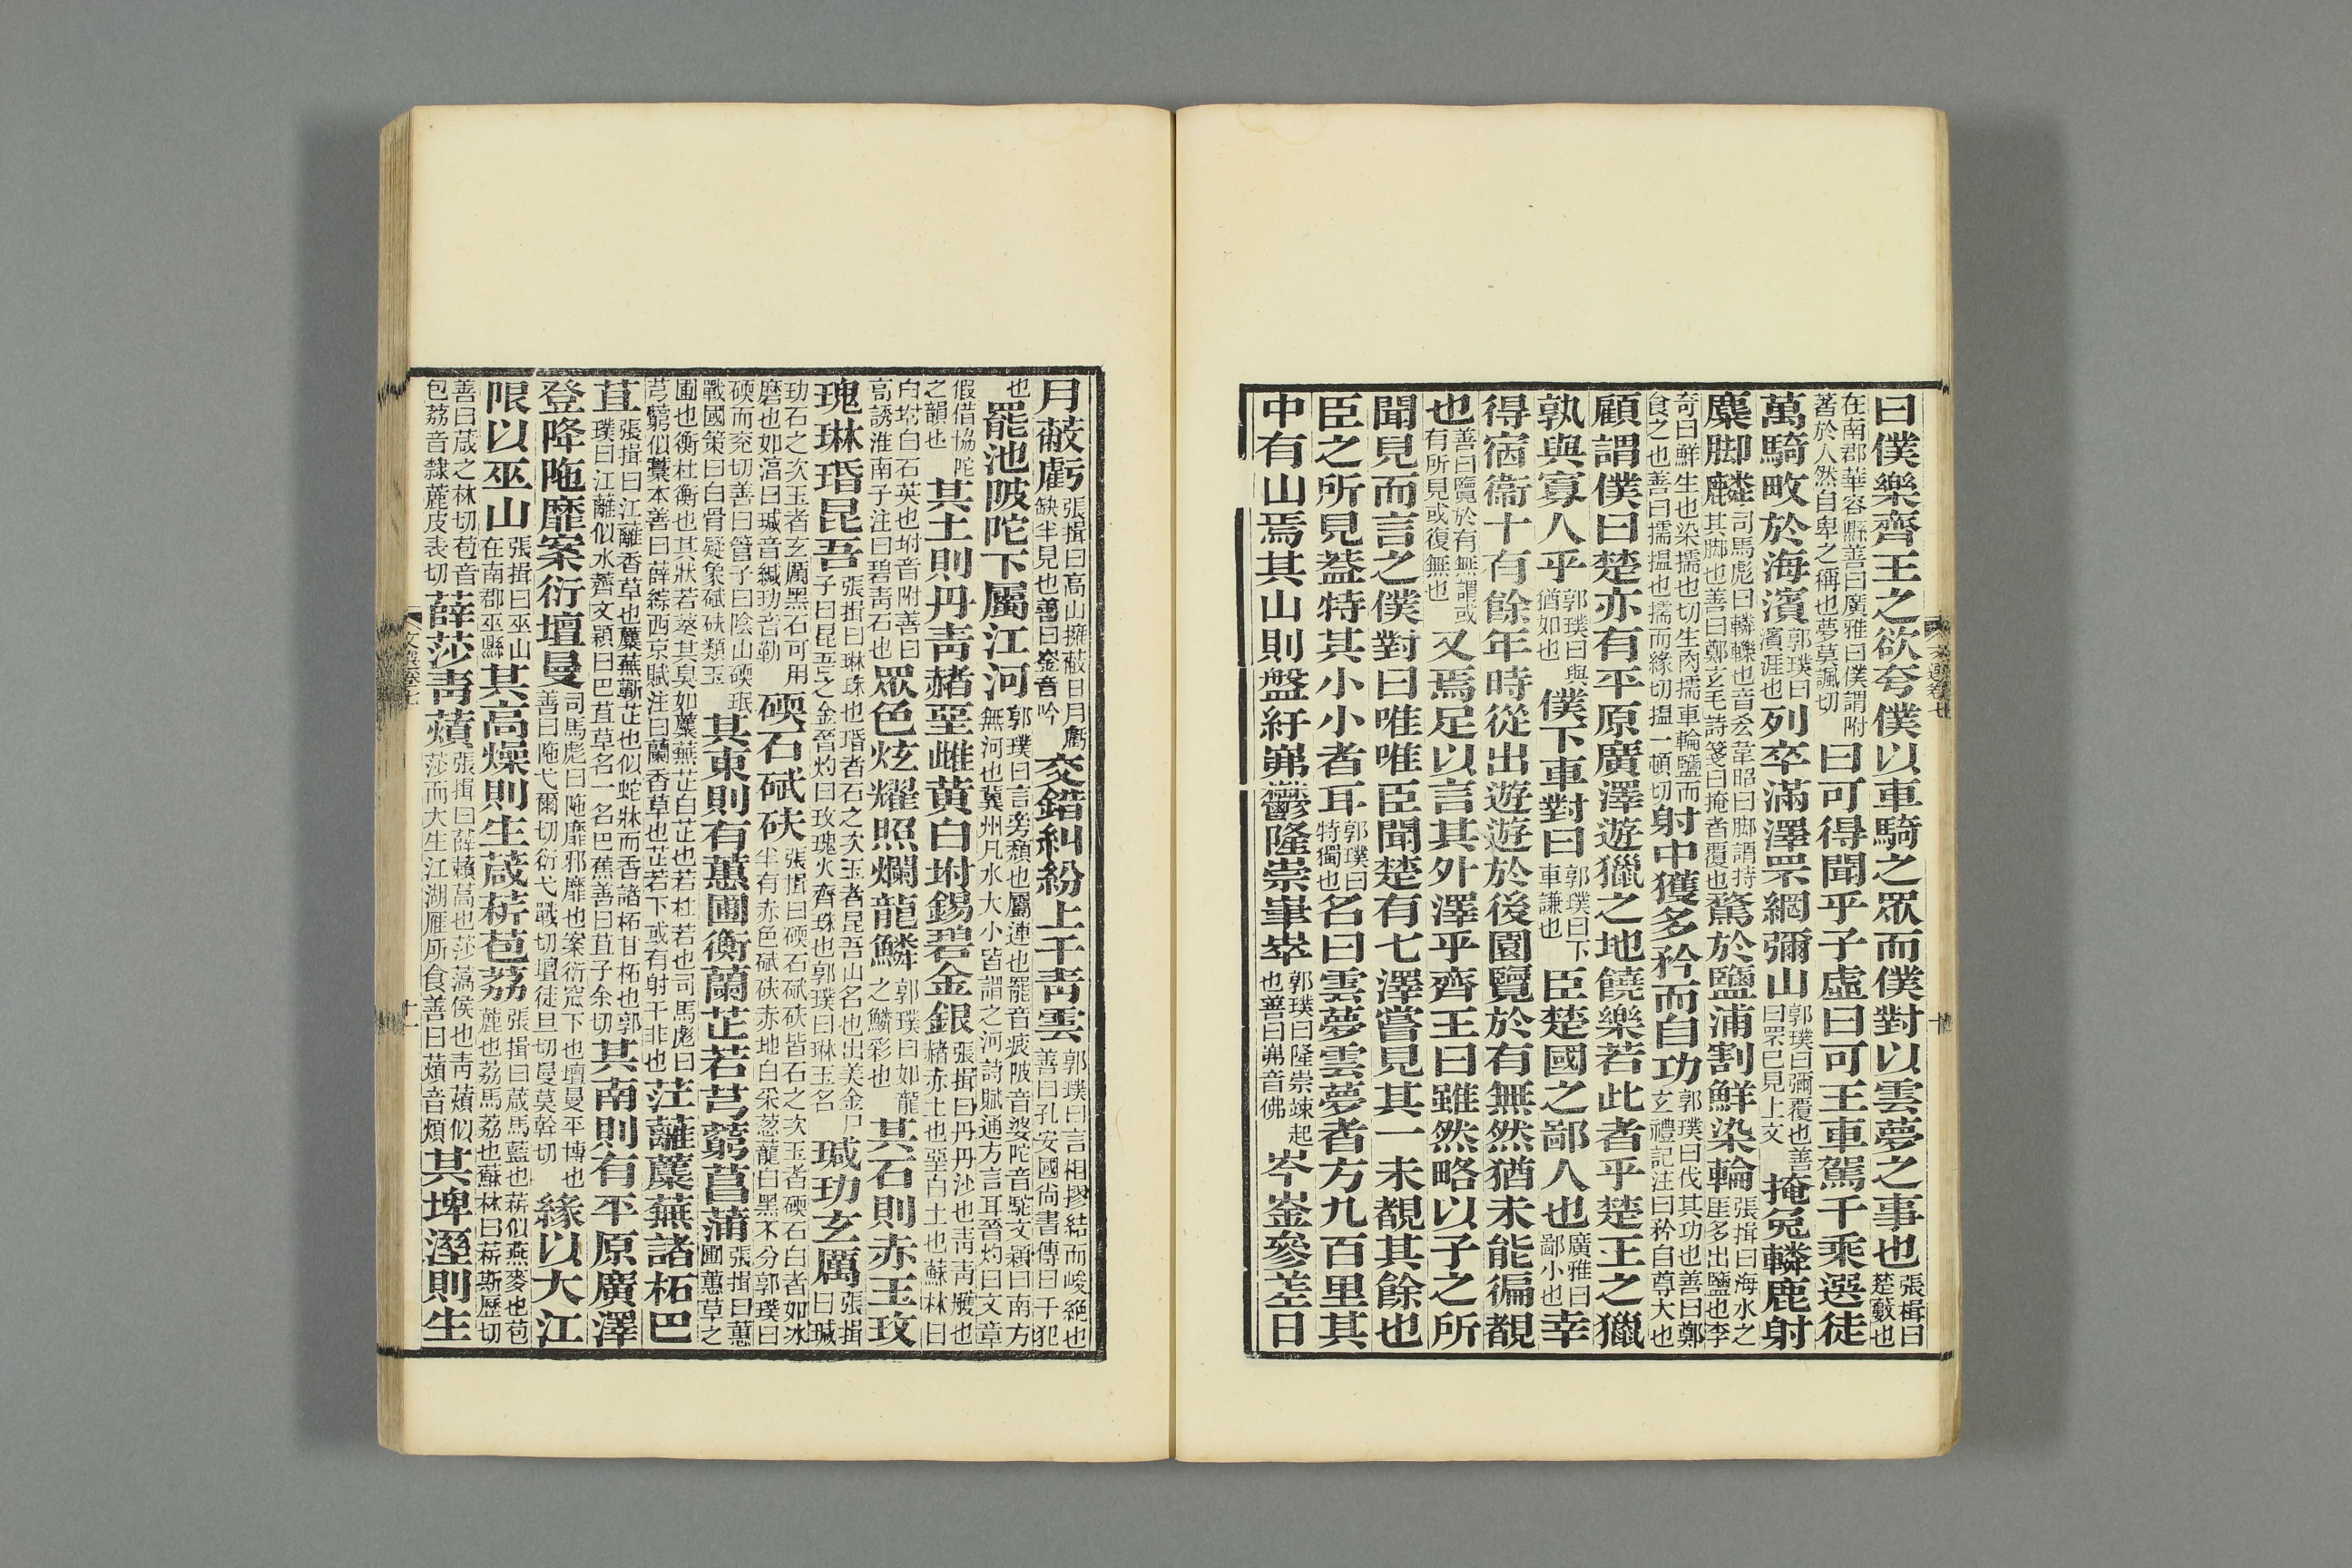 曰僕樂齊王之欲夸僕以車騎之眾而僕對以雲夢之事也張楫曰楚藪也
在南郡華容縣善曰廣雅曰僕謂附著於人然自卑之稱也夢莫諷切曰可得聞乎子虛曰可王車駕千乘選徒
萬騎畋於海濱郭璞曰濱涯也列卒滿澤罘網彌山郭璞曰彌覆也善曰罘已見上文掩兔轔鹿射
麋脚麟司馬彪曰轔轢也音吝韋昭曰脚謂持其脚也善曰鄭玄毛詩箋曰掩者覆也騖於鹽浦割鮮染輪張揖曰海水之厓多出鹽也李
奇曰鮮生也染擩也切生肉擩車輪鹽而食之也善曰擩揾也擩而緣切揾一頓切射中獲多矜而自功郭璞曰伐其功也善曰鄭玄禮記注曰矜自尊大也
顧謂僕曰楚亦有平原廣澤遊獵之地饒樂若此者乎楚王之獵
孰與寡人乎郭璞曰與猶如也僕下車對曰郭璞曰下車謙也臣楚國之鄙人也廣雅曰鄙小也幸
得宿衞十有餘年時從出遊遊於後園覽於有無然猶未能徧覩
也善曰覽於有無謂或有所見或復無也又焉足以言其外澤乎齊王曰雖然略以子之所
聞見而言之僕對曰唯唯臣聞楚有七澤嘗見其一未覩其餘也
臣之所見蓋特其小小者耳郭璞曰特獨也名曰雲夢雲夢者方九百里其
中有山焉其山則盤紆岪鬱隆崇嵂崒郭璞曰隆崇竦起也善曰岪音佛岑崟參差日
月蔽虧張揖曰高山擁蔽日月虧缺半見也善曰崟音吟交錯糾紛上干青雲郭璞曰言相摎結而峻絕也善曰孔安國尚書傳曰干犯
也罷池陂陀下屬江河郭璞曰言旁頹也屬連也罷音疲陂音婆陀音駝文穎曰南方無河也冀州凡水大小皆謂之河詩賦通方言耳晉灼曰文章
假借協陀之韻也其土則丹青赭堊雌黃白坿錫碧金銀張揖曰丹丹沙也青青雘也赭赤土也堊白土也蘇林曰
白坿白石英也坿音附善曰高誘淮南子注曰碧青石也眾色炫耀照爛龍鱗郭璞曰如龍之鱗彩也其石則赤玉玫
瑰琳瑉昆吾張揖曰琳珠也瑉者石之次玉者昆吾山名也出美金尸子曰昆吾之金晉灼曰玫瑰火齊珠也郭璞曰琳玉名瑊玏玄厲張揖曰瑊
玏石之次玉者玄厲黑石可用磨也如湻曰瑊音緘玏音勒碝石碔砆張揖曰碝石碔砆皆石之次玉者碝石白者如冰半有赤色碔砆赤地白采葱蘢白黑不分郭璞曰
碝而兖切善曰管子曰陰山碝珉戰國策曰白骨疑象碔砆類玉其東則有蕙圃衡蘭芷若芎藭菖蒲張揖曰蕙圃蕙草之
圃也衡杜衡也其狀若葵其臭如蘪蕪芷白芷也若杜若也司馬彪曰芎藭似藁本善曰薛綜西京賦注曰蘭香草也芷若下或有射干非也茳蘺蘪蕪諸柘巴
苴張揖曰江蘺香草也蘪蕪蘄芷也似蛇牀而香諸柘甘柘也郭璞曰江蘺似水薺文穎曰巴苴草名一名巴蕉善曰苴子余切其南則有平原廣澤
登降陁靡案衍壇曼司馬彪曰陁靡邪靡也案衍窊下也壇曼平博也善曰陁弋爾切衍弋戰切壇徒旦切曼莫幹切緣以大江
限以巫山張揖曰巫山在南郡巫縣其高燥則生葴菥苞荔張揖曰葴馬藍也菥似燕麥也苞藨也荔馬荔也蘇林曰菥斯歷切
善曰葴之林切苞音包荔音隸藨皮表切薛莎青薠張揖曰薛藾蒿也莎蒿侯也青薠似莎而大生江湖雁所食善曰薠音煩其埤溼則生
文選卷七
十
文選卷七
十一